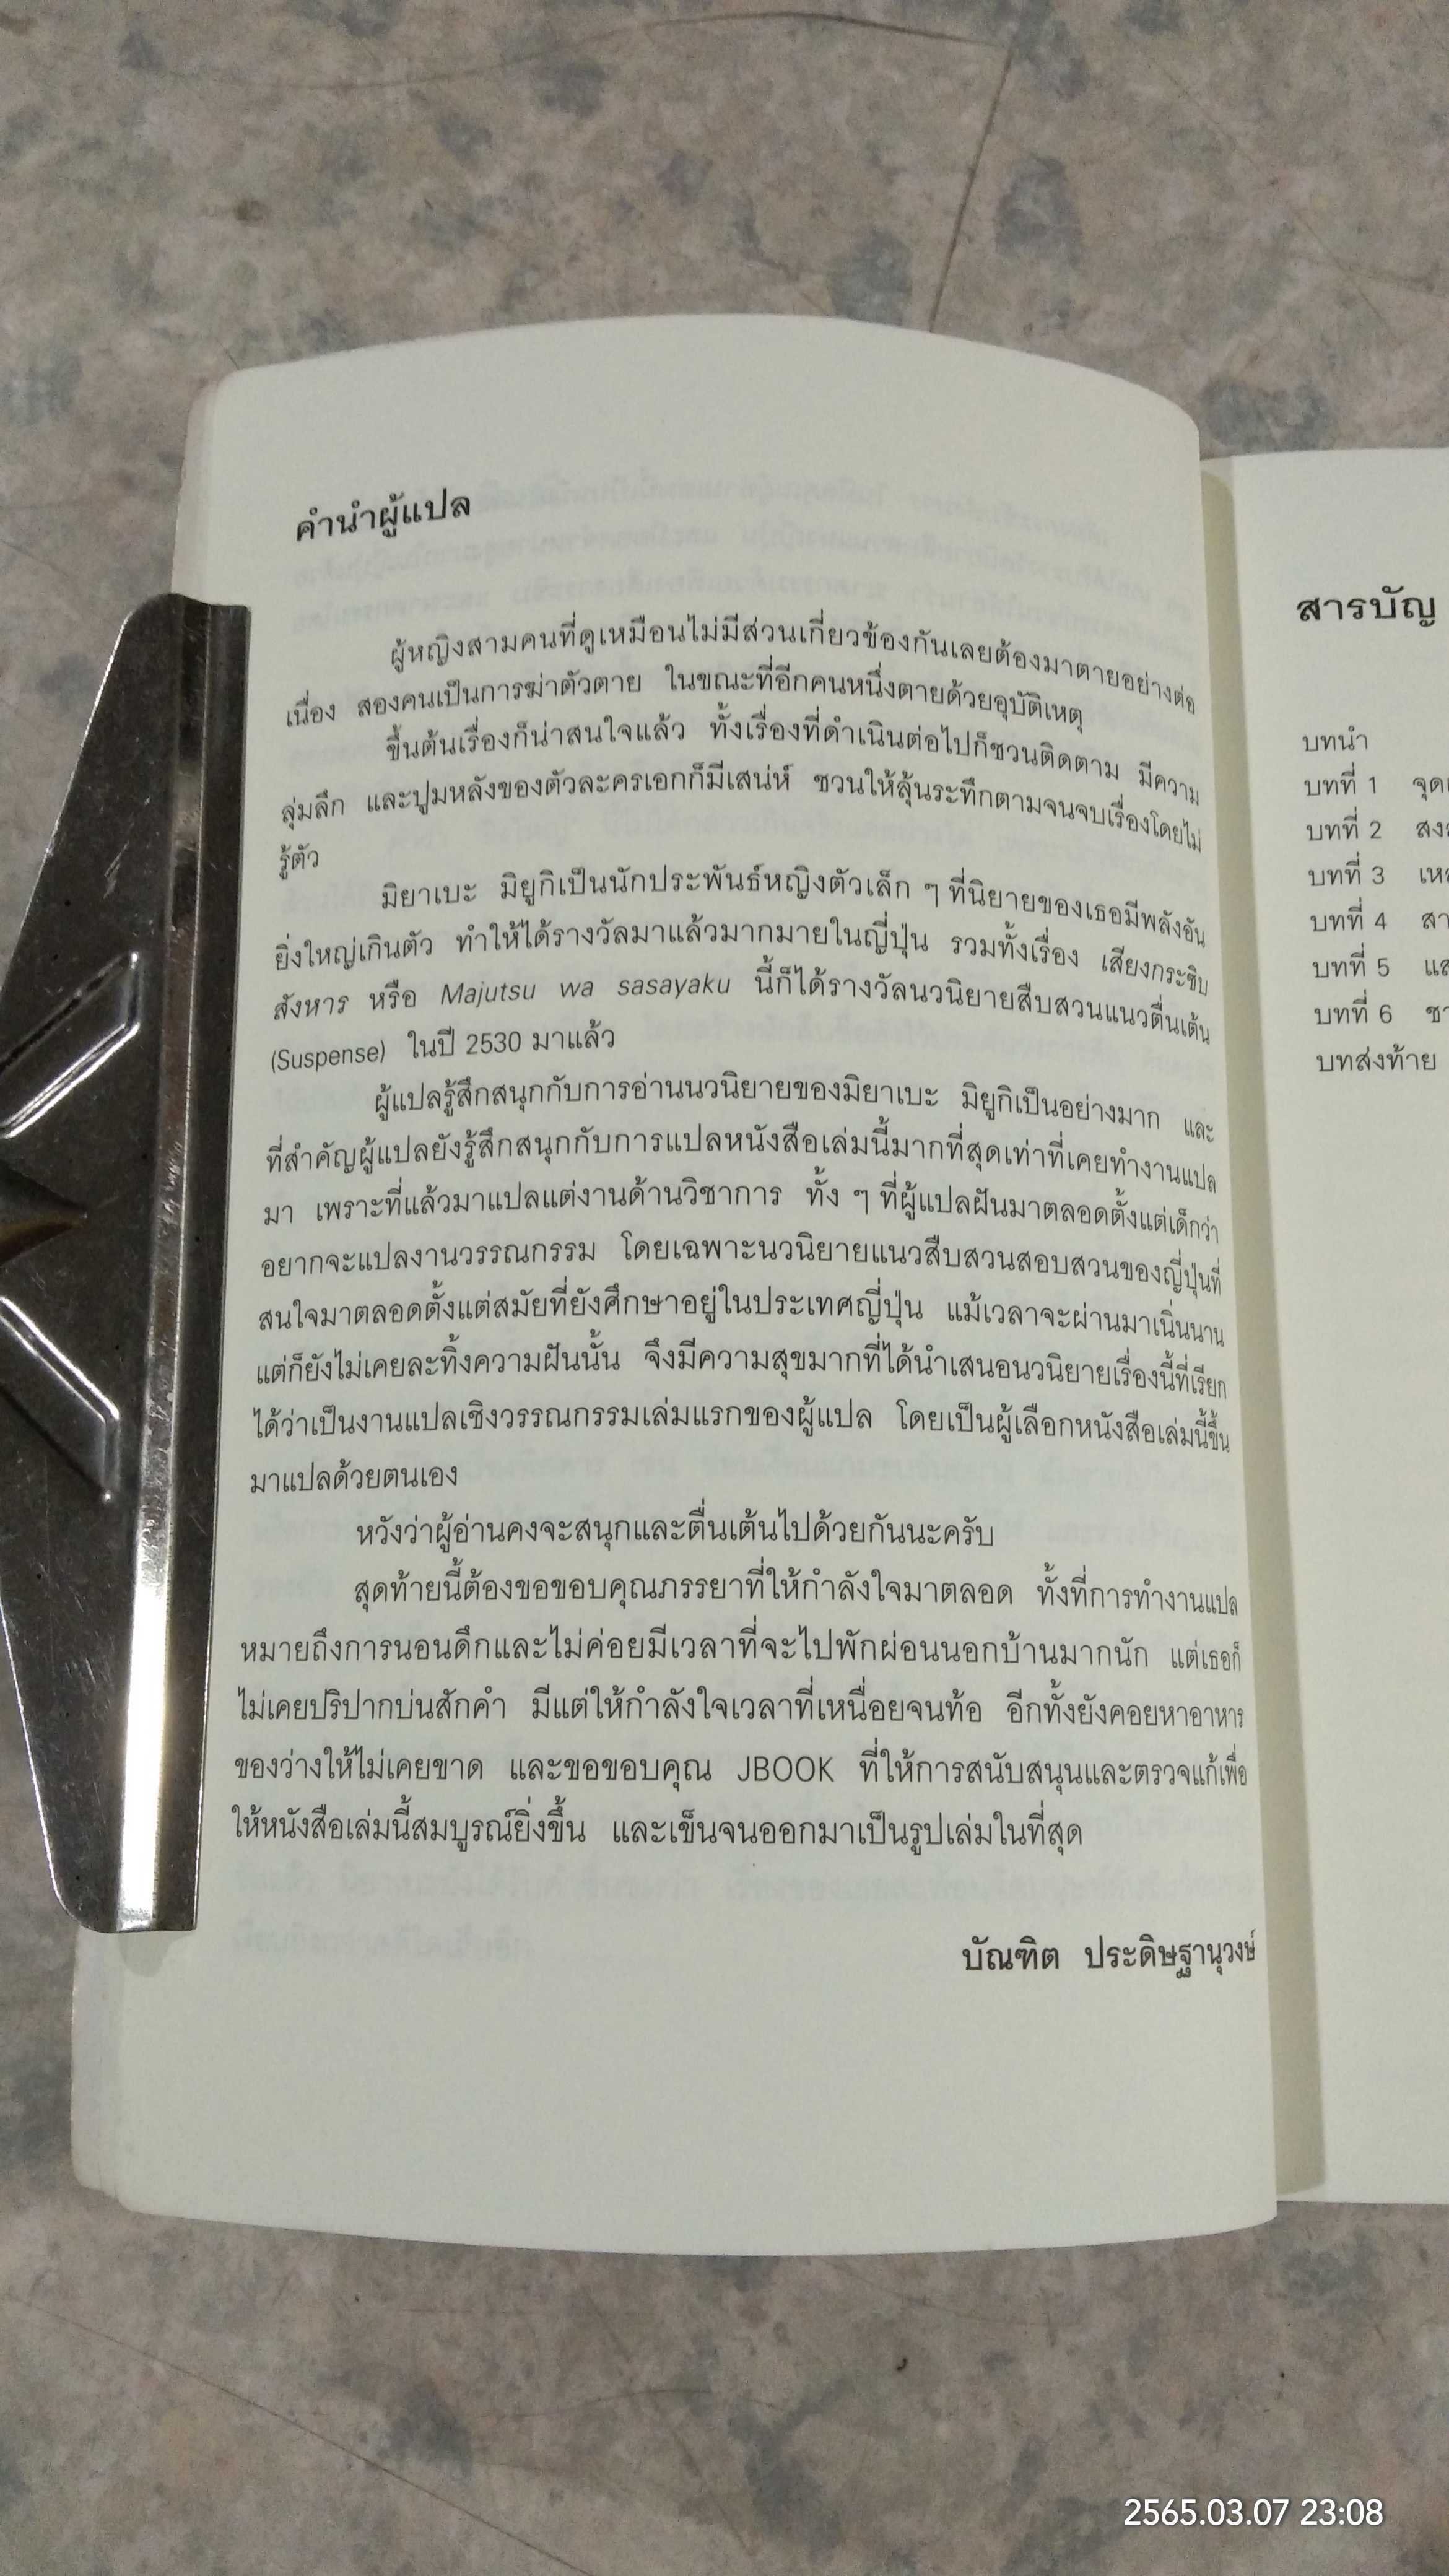 คำนำผู้แปล
ผู้หญิงสามคนที่ดูเหมือนไม่มีส่วนเกี่ยวข้องกันเลยต้องมาตายอย่างต่อ
เนื่อง สองคนเป็นการฆ่าตัวตาย ในขณะที่อีกคนหนึ่งตายด้วยอุบัติเหตุ
ขึ้นต้นเรื่องก็น่าสนใจแล้ว ทั้งเรื่องที่ดำเนินต่อไปก็ชวนติดตาม มีความ
ลุ่มลึก และปูมหลังของตัวละครเอกก็มีเสน่ห์ ชวนให้ลุ้นระทึกตามจนจบเรื่องโดยไม่
รู้ตัว
มิยาเบะ มิยูกิเป็นนักประพันธ์หญิงตัวเล็ก ๆ ที่นิยายของเธอมีพลังอัน
ยิ่งใหญ่เกินตัว ทำให้ได้รางวัลมาแล้วมากมายในญี่ปุ่น รวมทั้งเรื่อง เสียงกระซิบ
สังหาร หรือ Majutsu wa sasayaku นี้ก็ได้รางวัลนวนิยายสืบสวนแนวตื่นเต้น
(Suspense) ในปี 2530 มาแล้ว
ผู้แปลรู้สึกสนุกกับการอ่านนวนิยายของมิยาเบะ มิยูกิเป็นอย่างมาก และ
ที่สำคัญผู้แปลยังรู้สึกสนุกกับการแปลหนังสือเล่มนี้มากที่สุดเท่าที่เคยทำงานแปล
มา เพราะที่แล้วมาแปลแต่งานด้านวิชาการ ทั้ง ๆ ที่ผู้แปลฝันมาตลอดตั้งแต่เด็กว่า
อยากจะแปลงานวรรณกรรม โดยเฉพาะนวนิยายแนวสืบสวนสอบสวนของญี่ปุ่นที่
สนใจมาตลอดตั้งแต่สมัยที่ยังศึกษาอยู่ในประเทศญี่ปุ่น แม้เวลาจะผ่านมาเนิ่นนาน
แต่ก็ยังไม่เคยละทิ้งความฝันนั้น จึงมีความสุขมากที่ได้นำเสนอนวนิยายเรื่องนี้ที่เรียก
ได้ว่าเป็นงานแปลเชิงวรรณกรรมเล่มแรกของผู้แปล โดยเป็นผู้เลือกหนังสือเล่มนี้ขึ้น
มาแปลด้วยตนเอง
หวังว่าผู้อ่านคงจะสนุกและตื่นเต้นไปด้วยกันนะครับ
สุดท้ายนี้ต้องขอขอบคุณภรรยาที่ให้กำลังใจมาตลอด ทั้งที่การทำงานแปล
หมายถึงการนอนดึกและไม่ค่อยมีเวลาที่จะไปพักผ่อนนอกบ้านมากนัก แต่เธอก็
ไม่เคยปริปากบ่นสักคำ มีแต่ให้กำลังใจเวลาที่เหนื่อยจนท้อ อีกทั้งยังคอยหาอาหาร
ของว่างให้ไม่เคยขาด และขอขอบคุณ JBOOK ที่ให้การสนับสนุนและตรวจแก้เพื่อ
ให้หนังสือเล่มนี้สมบูรณ์ยิ่งขึ้น และเข็นจนออกมาเป็นรูปเล่มในที่สุด
บัณฑิต ประดิษฐานุวงษ์
สารบัญ
บทนำ
บทที่ 1
บทที่ 2
บทที่ 3
บทที่ 4
บทที่ 5
บทที่ 6
บทส่งท้าย
2565.03.07 23:08